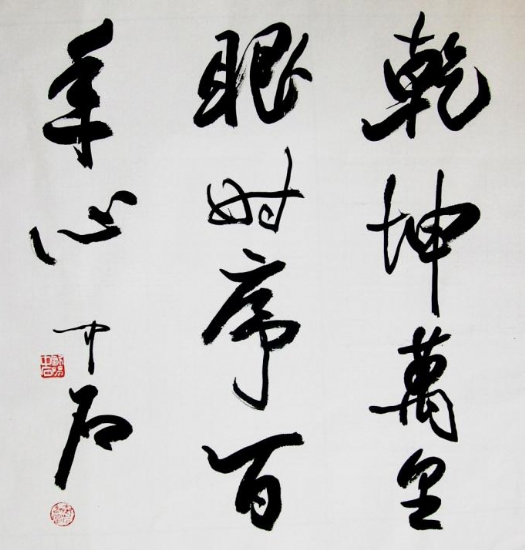 乾坤萬里
眼时序百
年心 中石